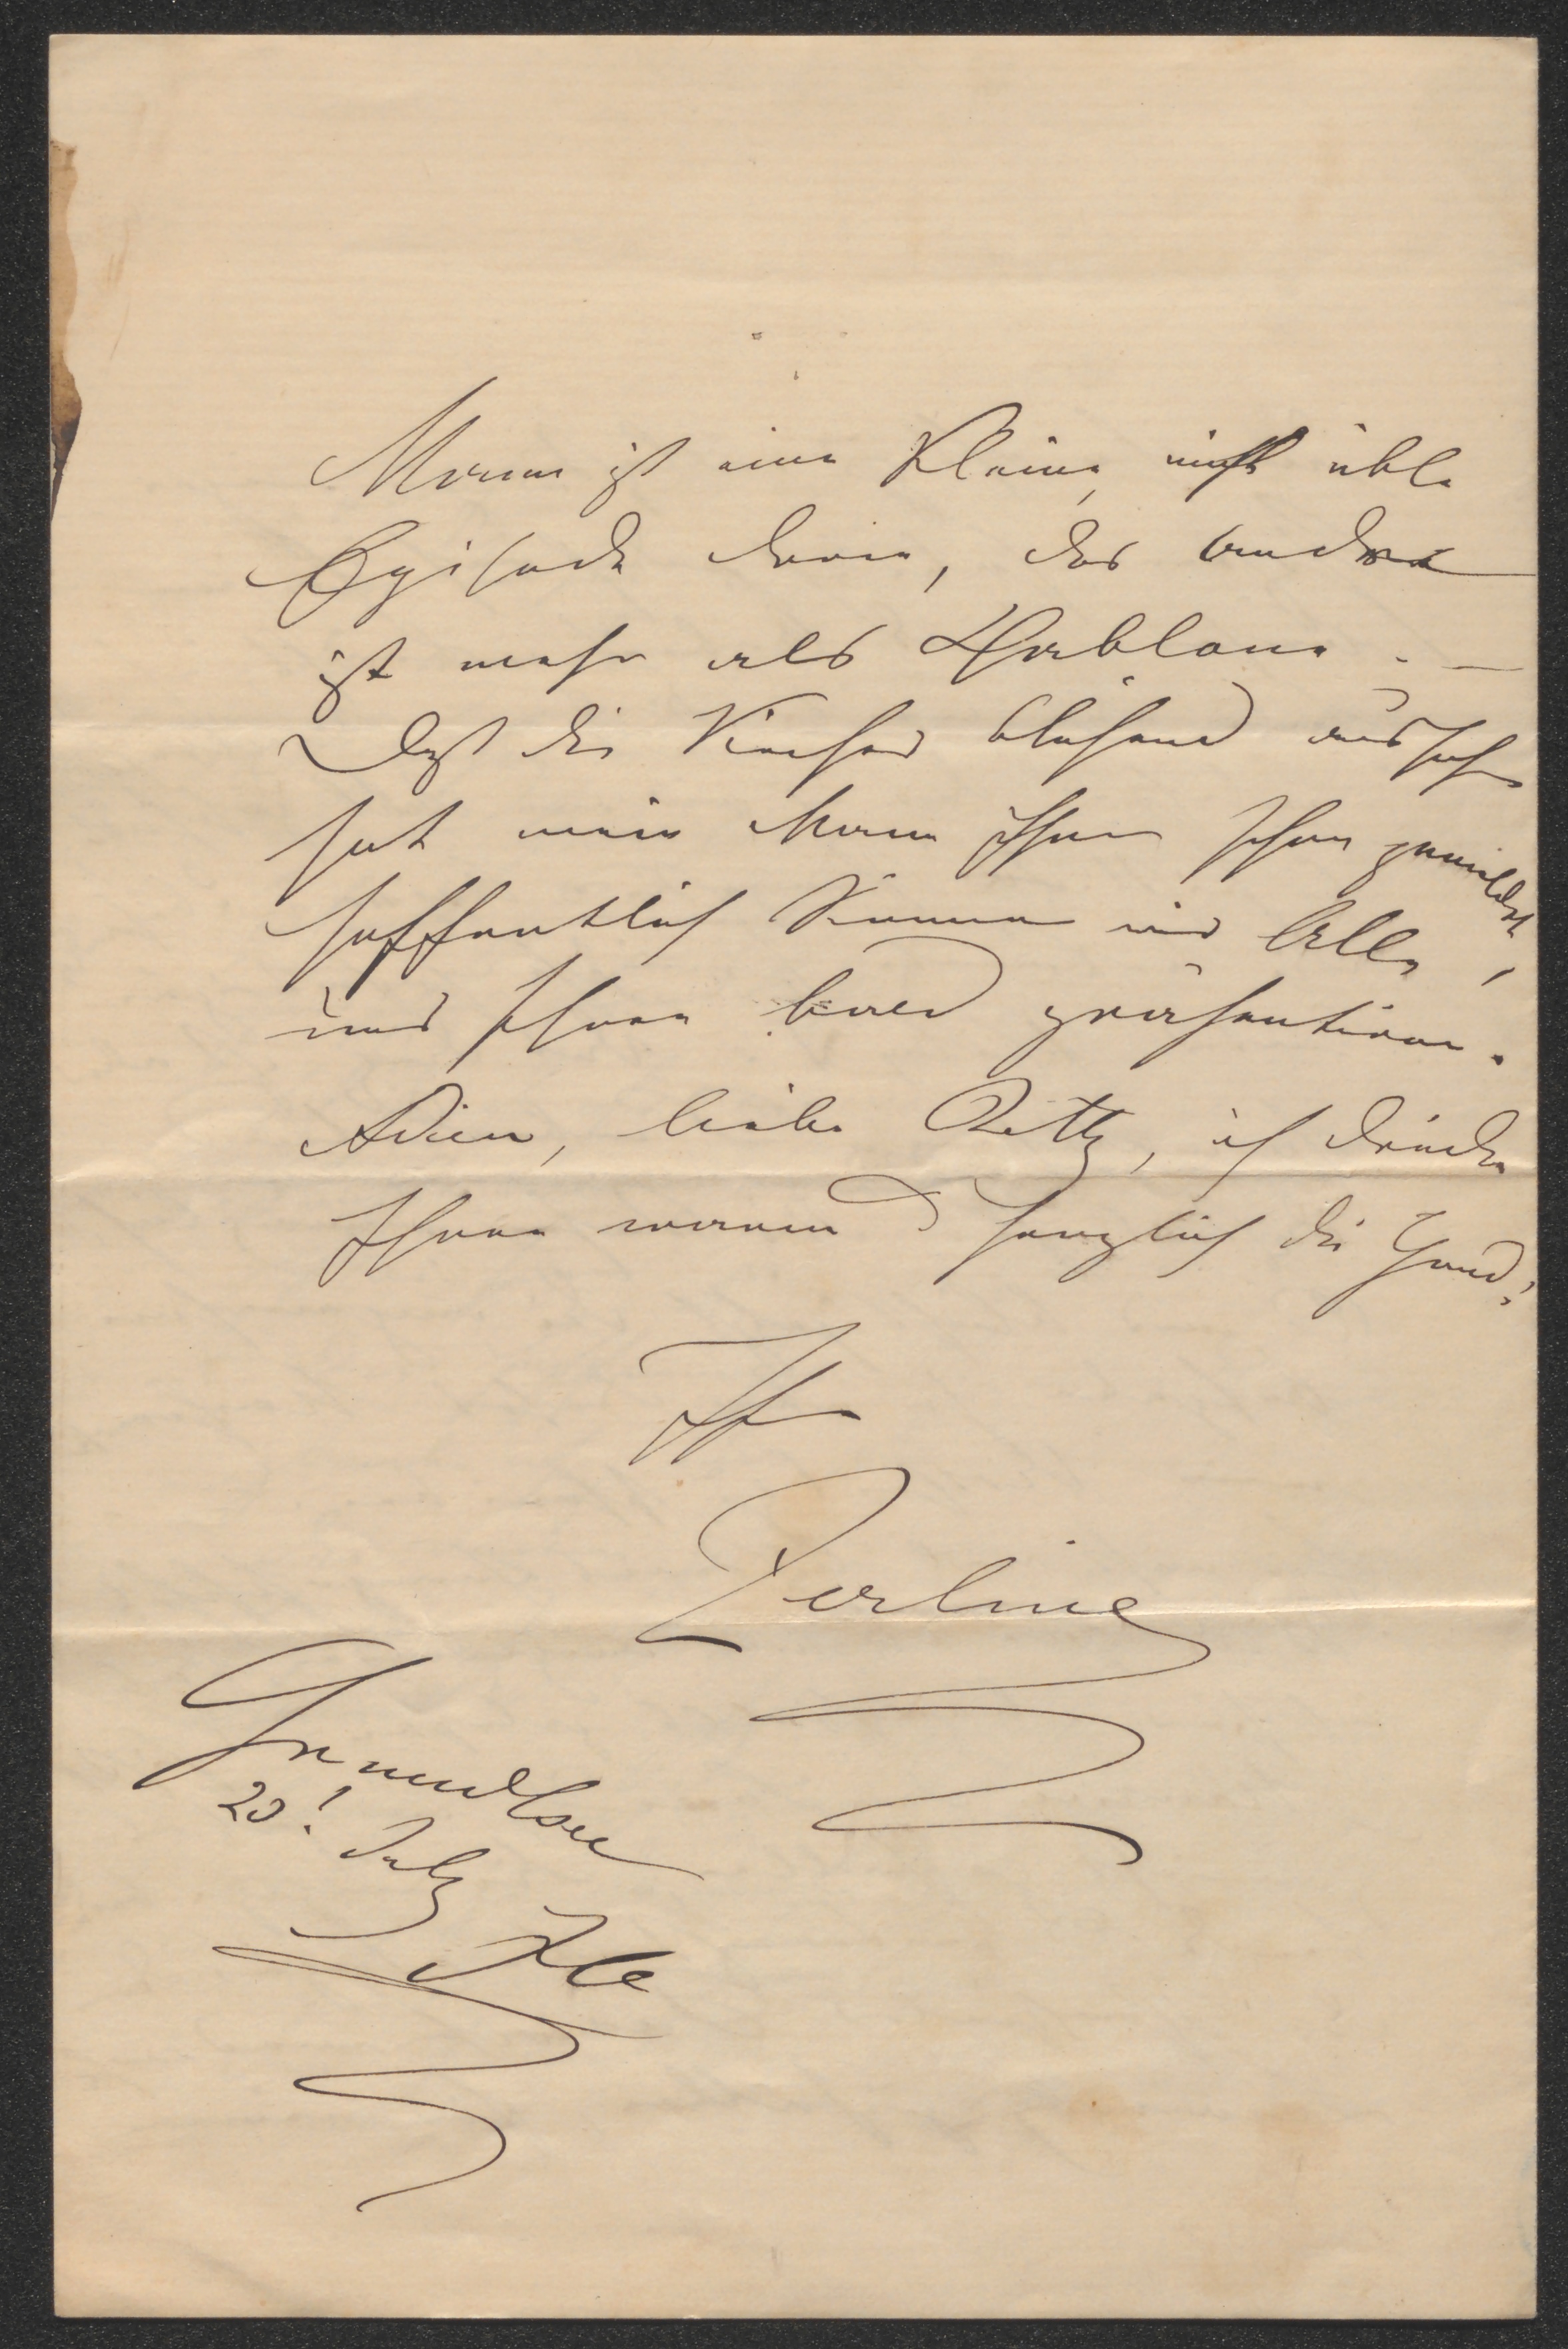 Mann ist eine kleine, nicht üble
Episode darin, das andere
ist mehr als Schablone. —
Daß die Kinder blühend aussehen
hat mein Mann Ihnen schon gemeldet,
hoffentlich können wir Alle,
uns Ihnen bald präsentiren.
Adieu, liebe Betty, ich drücke
Ihnen warm & herzlich die Hand!
Ihre
Zerline
Grundlsee
23! July